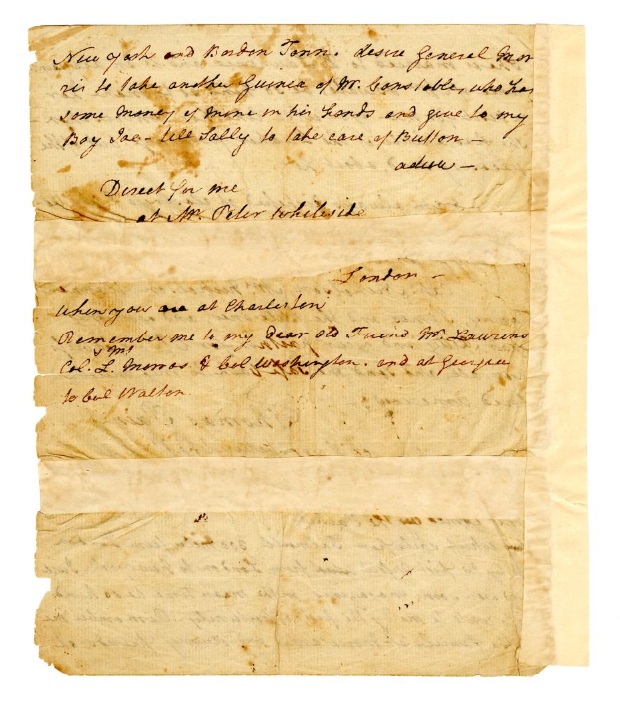 New York and Borden Town. desire General Mor
ris to take another Guinea of Mr. Constable, who has
some money of mine in his hands and give to my
Boy Joe - tell Sally to take care of Button -
adieu -
Direct for me
at Mr. Peter Whiteside
London -
When you are at Charleston
Remember me to my dear old Friend Mrs. Lawrens
Col. L. & Mrs Morris & Col Washington. and at Georgia
to Col Walton